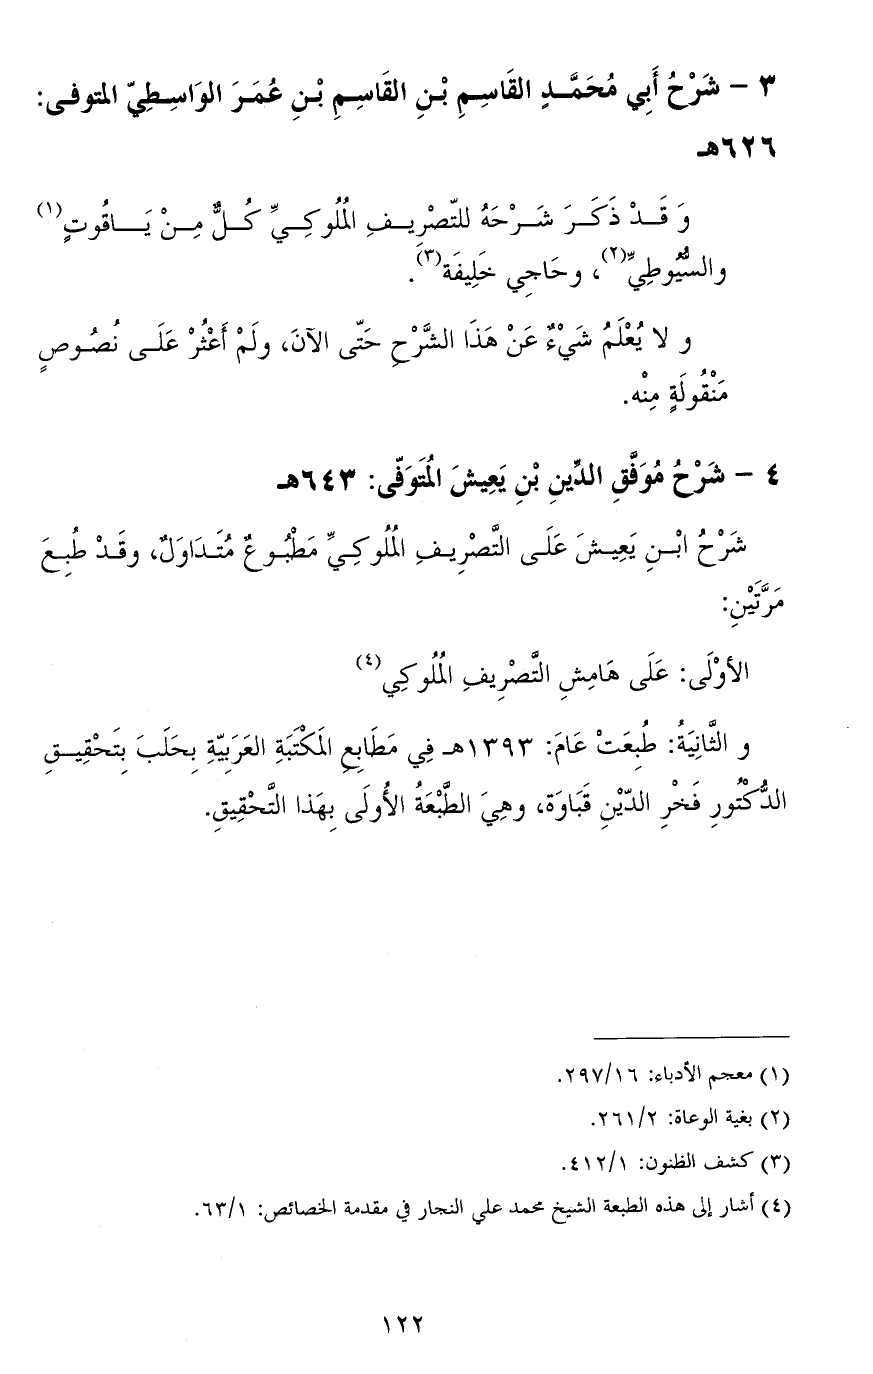 ٣ - شَرْحُ أَبِي مُحَمَّدٍ القَاسِمِ بْنِ القَاسِمِ بْنِ عُمَرَ الوَاسِطِيّ المتوفى:
٦٢٦هـ
وَ قَدْ ذَكَرَ شَرْحَهُ للتّصْرِيفِ المُلُوكِيِّ كُلٌّ مِنْ يَاقُوتٍ(١)
والسُّيُوطِيِّ(٢)، وحَاجِي خَلِيفَة(٣).
و لا يُعْلَمُ شَيْءٌ عَنْ هَذَا الشَّرْحِ حَتّى الآنَ، ولَمْ أَعْثُرْ عَلَى نُصُوصٍ
مَنْقُولَةٍ مِنْه.
٤ - شَرْحُ مُوَفَّقِ الدِّينِ بْنِ يَعِيشَ المُتَوَفّى: ٦٤٣هـ
شَرْحُ ابْنِ يَعِيشَ عَلَى التَّصْرِيفِ المُلُوكِيِّ مَطْبُوعٌ مُتَدَاوَلٌ، وقَدْ طُبِعَ
مَرَّتَيْنِ:
الأوْلَى: عَلَى هَامِشِ التَّصْرِيفِ المُلُوكِي(٤)
و الثَّانِيَةُ: طُبِعَتْ عَامَ: ١٣٩٣هـ فِي مَطَابِعِ المَكْتَبَةِ العَرَبِيّةِ بِحَلَبَ بِتَحْقِيقِ
الدُّكْتُورِ فَخْرِ الدّيْنِ قَبَاوَة، وهِيَ الطَّبْعَةُ الأُولَى بِهَذا التَّحْقِيقِ.
(١) معجم الأدباء: ٢٩٧/١٦.
(٢) بغية الوعاة: ٢٦١/٢.
(٣) كشف الظنون: ٤١٢/١.
(٤) أشار إلى هذه الطبعة الشيخ محمد علي النجار في مقدمة الخصائص: ٦٣/١.
١٢٢